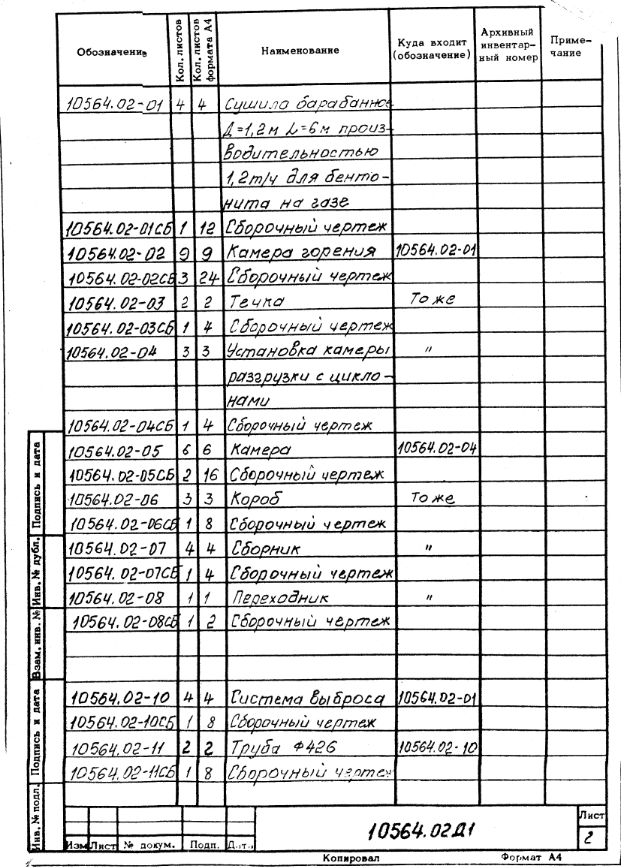 Обозначение Кол. листов Кол. листов формата А4 Наименование Куда входит (обозначение) Архивный инвентарный номер Примечание
10564.02-01 4 4 Сушило барабанное
Д=1,2м L=6м произ-
водительностью
1,2т/ч для бенто-
нита на газе
10564.02-01СБ 1 12 Сборочный чертеж
10564.02-02 9 9 Камера горения 10564.02-01
10564.02-02СБ 3 24 Сборочный чертеж
10564.02-03 2 2 Течка То же
10564.02-03СБ 1 4 Сборочный чертеж
10564.02-04 3 3 Установка камеры "
разгрузки с цикло-
нами
10564.02-04СБ 1 4 Сборочный чертеж
10564.02-05 6 6 Камера 10564.02-04
10564.02-05СБ 2 16 Сборочный чертеж
10564.02-06 3 3 Короб То же
10564.02-06СБ 1 8 Сборочный чертеж
10564.02-07 4 4 Сборник "
10564.02-07СБ 1 4 Сборочный чертеж
10564.02-08 1 1 Переходник "
10564.02-08СБ 1 2 Сборочный чертеж
10564.02-10 4 4 Система выброса 10564.02-01
10564.02-10СБ 1 8 Сборочный чертеж
10564.02-11 2 2 Труба Ф426 10564.02-10
10564.02-11СБ 1 8 Сборочный чертеж
Подпись и дата
Инв. № дубл.
Взам. инв. №
Подпись и дата
Инв. № подл.
Изм Лист № докум. Подп. Дата
10564.02Д1
Лист
2
Копировал Формат А4